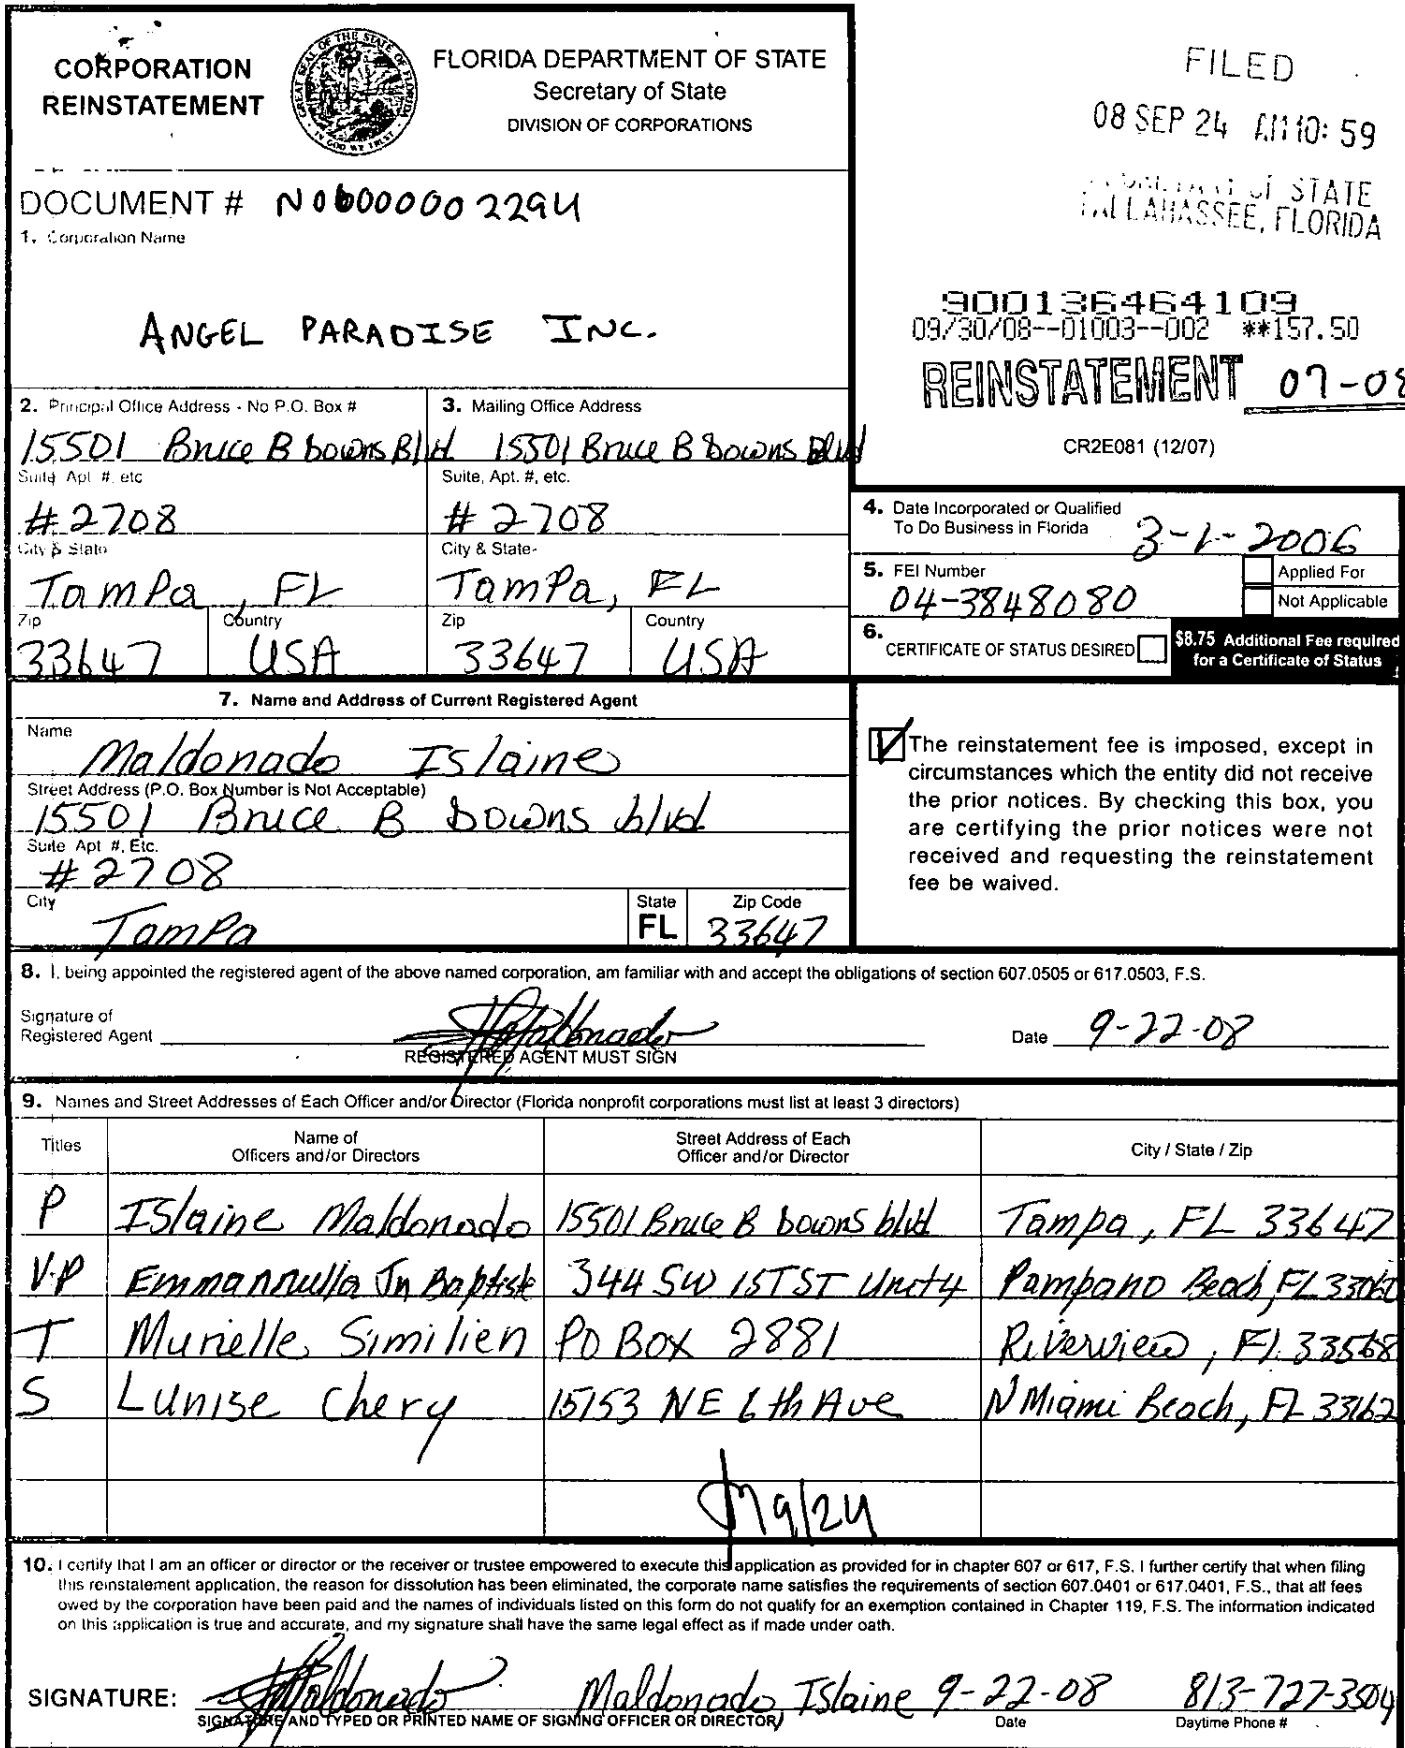 CORPORATION
REINSTATEMENT
GREAT SEAL OF THE STATE OF FLORIDA
IN GOD WE TRUST
FLORIDA DEPARTMENT OF STATE
Secretary of State
DIVISION OF CORPORATIONS
FILED
08 SEP 24 AM 10: 59
OF STATE
TALLAHASSEE, FLORIDA
DOCUMENT # N06000002294
1. Corporation Name
ANGEL PARADISE INC.
900136464109
09/30/08--01003--002 **157.50
REINSTATEMENT 07-08
CR2E081 (12/07)
2. Principal Office Address - No P.O. Box #
15501 Bruce B Downs Blvd
Suite Apt #, etc
#2708
City & State
Tampa, FL
Zip
33647
Country
USA
3. Mailing Office Address
15501 Bruce B Downs Blvd
Suite, Apt. #, etc.
#2708
City & State
Tampa, FL
Zip
33647
Country
USA
4. Date Incorporated or Qualified
To Do Business in Florida 3-1-2006
5. FEI Number
04-3848080
Applied For
Not Applicable
6. CERTIFICATE OF STATUS DESIRED
$8.75 Additional Fee required
for a Certificate of Status
7. Name and Address of Current Registered Agent
Name
Maldonado Islaine
Street Address (P.O. Box Number is Not Acceptable)
15501 Bruce B Downs blvd
Suite Apt #, Etc.
#2708
City
Tampa
State
FL
Zip Code
33647
The reinstatement fee is imposed, except in
circumstances which the entity did not receive
the prior notices. By checking this box, you
are certifying the prior notices were not
received and requesting the reinstatement
fee be waived.
8. I, being appointed the registered agent of the above named corporation, am familiar with and accept the obligations of section 607.0505 or 617.0503, F.S.
Signature of
Registered Agent Maldonado
REGISTERED AGENT MUST SIGN
Date 9-22-08
9. Names and Street Addresses of Each Officer and/or Director (Florida nonprofit corporations must list at least 3 directors)
Titles
Name of
Officers and/or Directors
Street Address of Each
Officer and/or Director
City / State / Zip
P Islaine Maldonado 15501 Bruce B Downs blvd Tampa, FL 33647
V.P Emmannulla Jn Baptiste 344 SW 1ST ST Unit 4 Pampano Beach, FL 33060
T Murielle Similien PO Box 2881 Riverview, Fl. 33568
S Lunise Chery 15153 NE 6th Ave N Miami Beach, FL 33162
9/24
10. I certify that I am an officer or director or the receiver or trustee empowered to execute this application as provided for in chapter 607 or 617, F.S. I further certify that when filing
this reinstatement application, the reason for dissolution has been eliminated, the corporate name satisfies the requirements of section 607.0401 or 617.0401, F.S., that all fees
owed by the corporation have been paid and the names of individuals listed on this form do not qualify for an exemption contained in Chapter 119, F.S. The information indicated
on this application is true and accurate, and my signature shall have the same legal effect as if made under oath.
SIGNATURE: Maldonado Maldonado Islaine 9-22-08 813-727-3504
SIGNATURE AND TYPED OR PRINTED NAME OF SIGNING OFFICER OR DIRECTOR
Date
Daytime Phone #